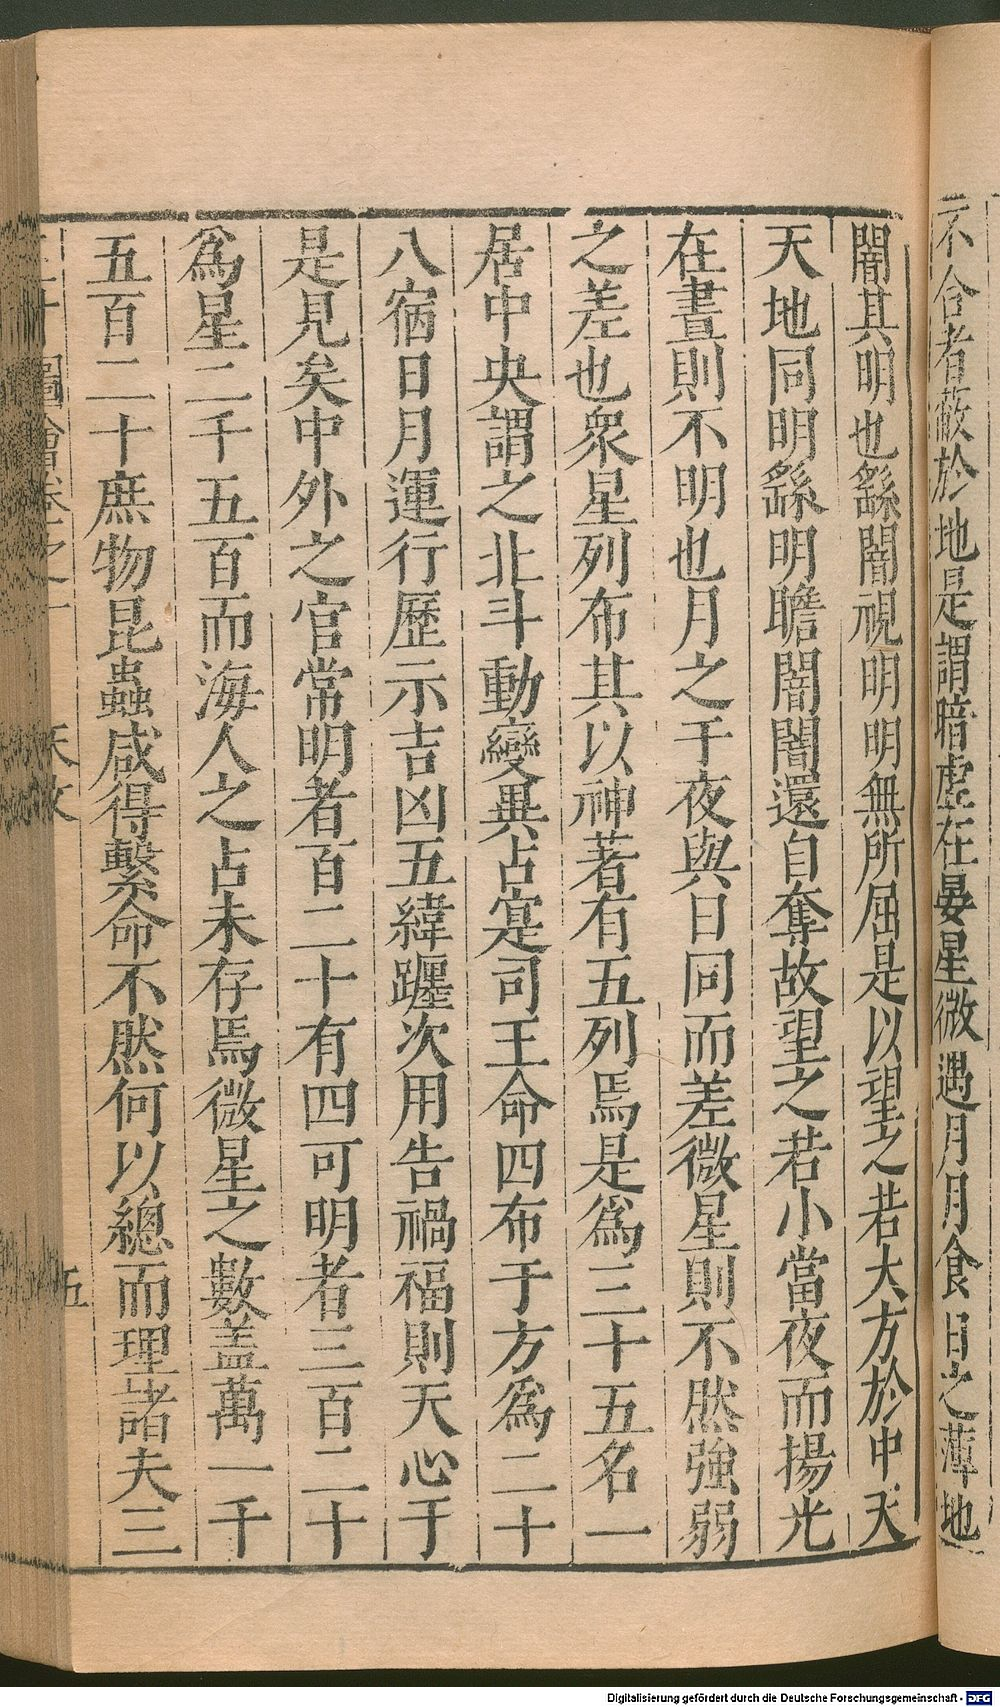 不合者蔽於地是謂暗虛在星星微遇月月食日之薄地
闇其明也繇闇視明明無所屈是以望之若大方於中天
天地同明繇明瞻闇闇還自奪故望之若小當夜而揚光
在晝則不明也月之于夜與日同而差微星則不然強弱
之差也衆星列布其以神著有五列焉是爲三十五名一
居中央謂之北斗動變異占寔司王命四布于方爲二十
八宿日月運行歷示吉凶五緯躔次用告禍福則天心于
是見矣中外之官常明者百二十有四可明者三百二十
爲星二千五百而海人之占未存焉微星之數盖萬一千
五百二十庶物昆蟲咸得繫命不然何以總而理諸夫三
圖會卷之一 天文 五
Digitalisierung gefördert durch die Deutsche Forschungsgemeinschaft - DFG